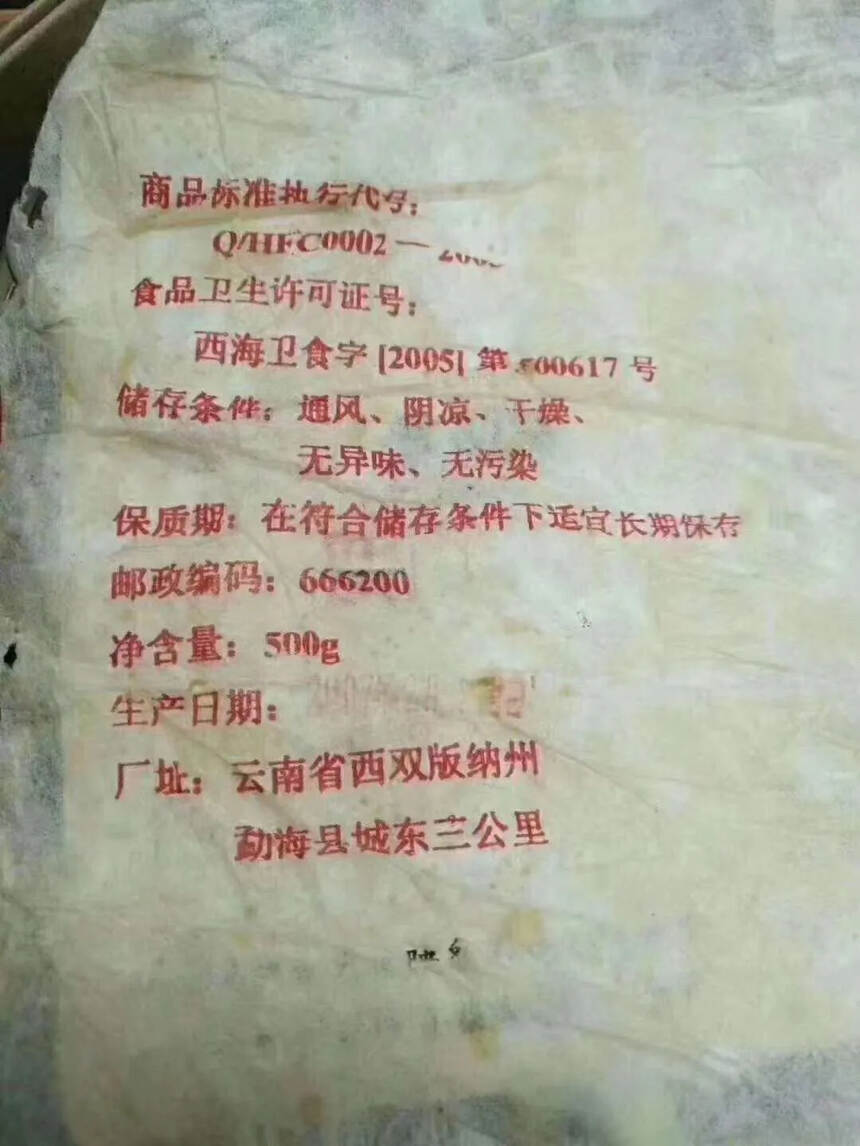 商品标准执行代号：
Q/HFC0002 —
食品卫生许可证号：
西海卫食字 [2005] 第 号
储存条件：通风、阴凉、干燥、
无异味、无污染
保质期：在符合储存条件下适宜长期保存
邮政编码：666200
净含量：500g
生产日期：
厂址：云南省西双版纳州
勐海县城东三公里